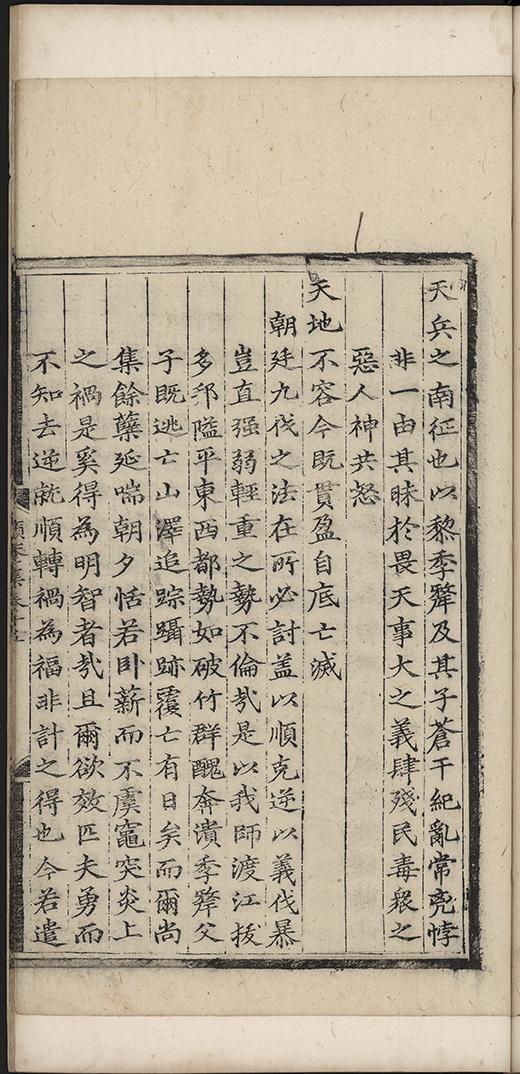 天兵之南征也以黎季犛及其子蒼干紀亂常兇悖
非一由其昧於畏天事大之義肆殘民毒衆之
惡人神共怒
天地不容今既貫盈自底亡滅
朝廷九伐之法在所必討盖以順克逆以義伐暴
豈直强弱輕重之勢不倫㢤是以我師渡江抜
多邦隘平東西都勢如破竹群醜奔潰季犛父
子既逃亡山澤追踪躡跡覆亡有日矣而爾尚
集餘孽延喘朝夕恬若卧薪而不虞竈突炎上
之禍是奚得為明智者㢤且爾欲效匹夫勇而
不知去逆就順轉禍為福非計之得也今若遣